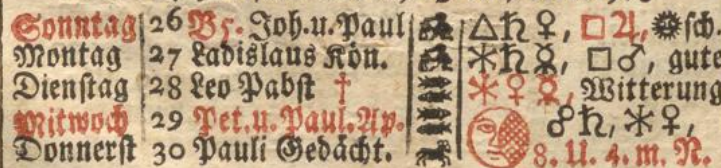 Sonntag 26 B5. Joh.u.Paul △♄♀, □♃, ✹ſch.
Montag 27 Ladislaus Kön. ⚹♄☿, □♂, gute
Dienſtag 28 Leo Pabſt † ⚹♀☿, Witterung
Mitwoch 29 Pet.u.Paul.Ap. ☍♄, ⚹♀,
Donnerſt 30 Pauli Gedächt. 8. U. 4. m. N.